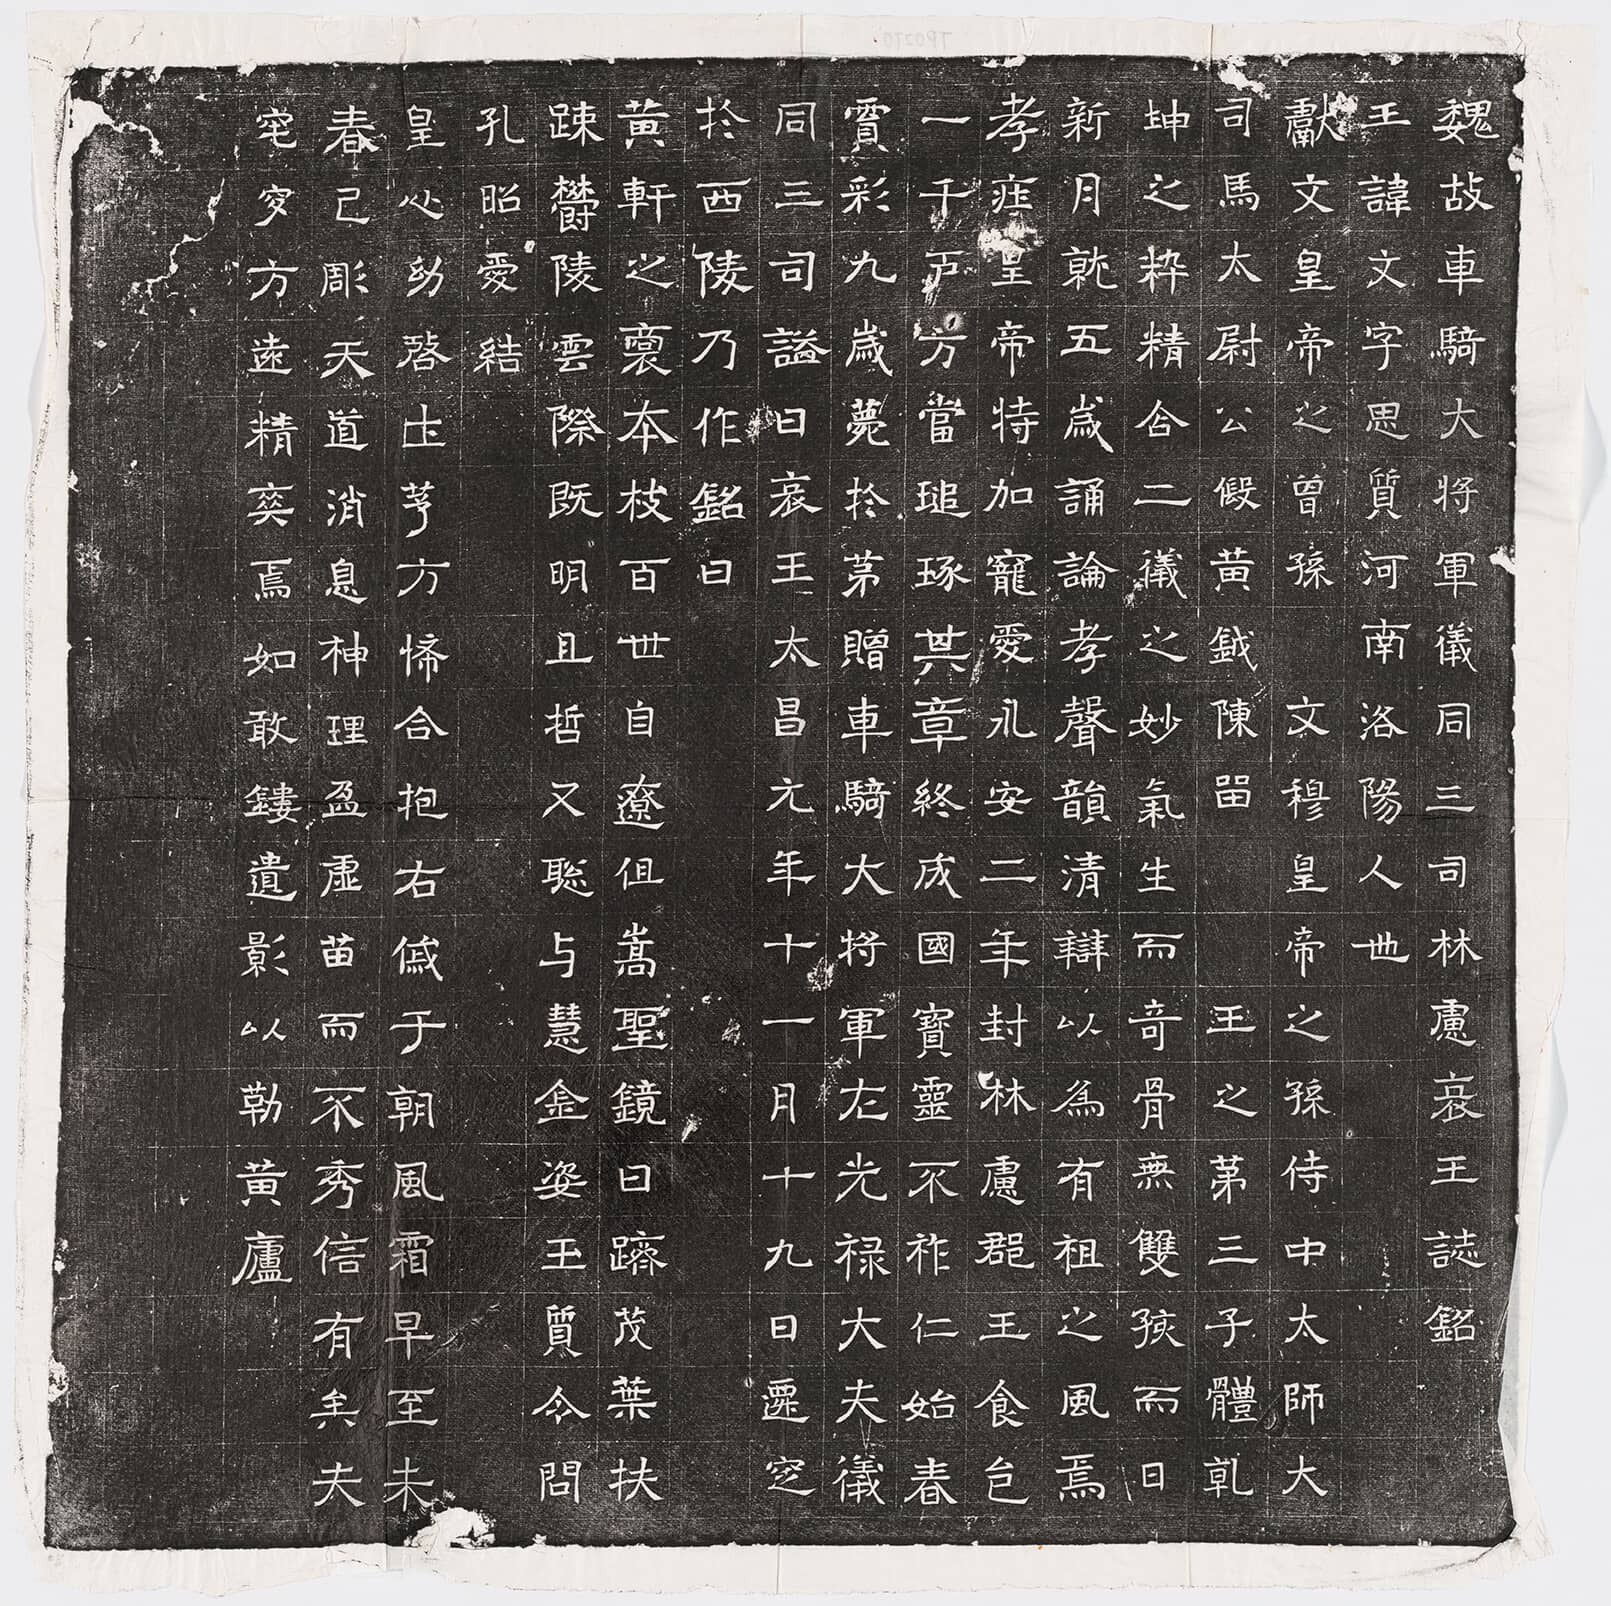 魏故車騎大将軍儀同三司林慮哀王誌銘
王諱文字思質河南洛陽人也
獻文皇帝之曾孫 文穆皇帝之孫侍中太師大
司馬太尉公假黄鉞陳留 王之第三子體乹
坤之粹精合二儀之妙氣生而竒骨無雙孩而日
新月就五歳誦論孝聲韻清辯以為有祖之風焉
孝莊皇帝特加寵愛永安二年封林慮郡王食邑
一千戸方當琢其章終成國寶靈不祚仁始春
賈彩九歳薨於第贈車騎大将軍左光禄大夫儀
同三司謚曰哀王太昌元年十一月十九日遷窆
於西陵乃作銘曰
黄軒之裔本枝百世自遼徂嵩聖鏡日躋茂葉扶
踈欝陵雲際既明且哲又聡与慧金姿玉質令問
孔昭愛結
皇心幼啓土芧方希合抱右戚于朝風霜早至未
春已彫天道消息神理盈虚苗而不秀信有矣夫
窀穸方遠精爽焉如敢鏤遺影以勒黄廬